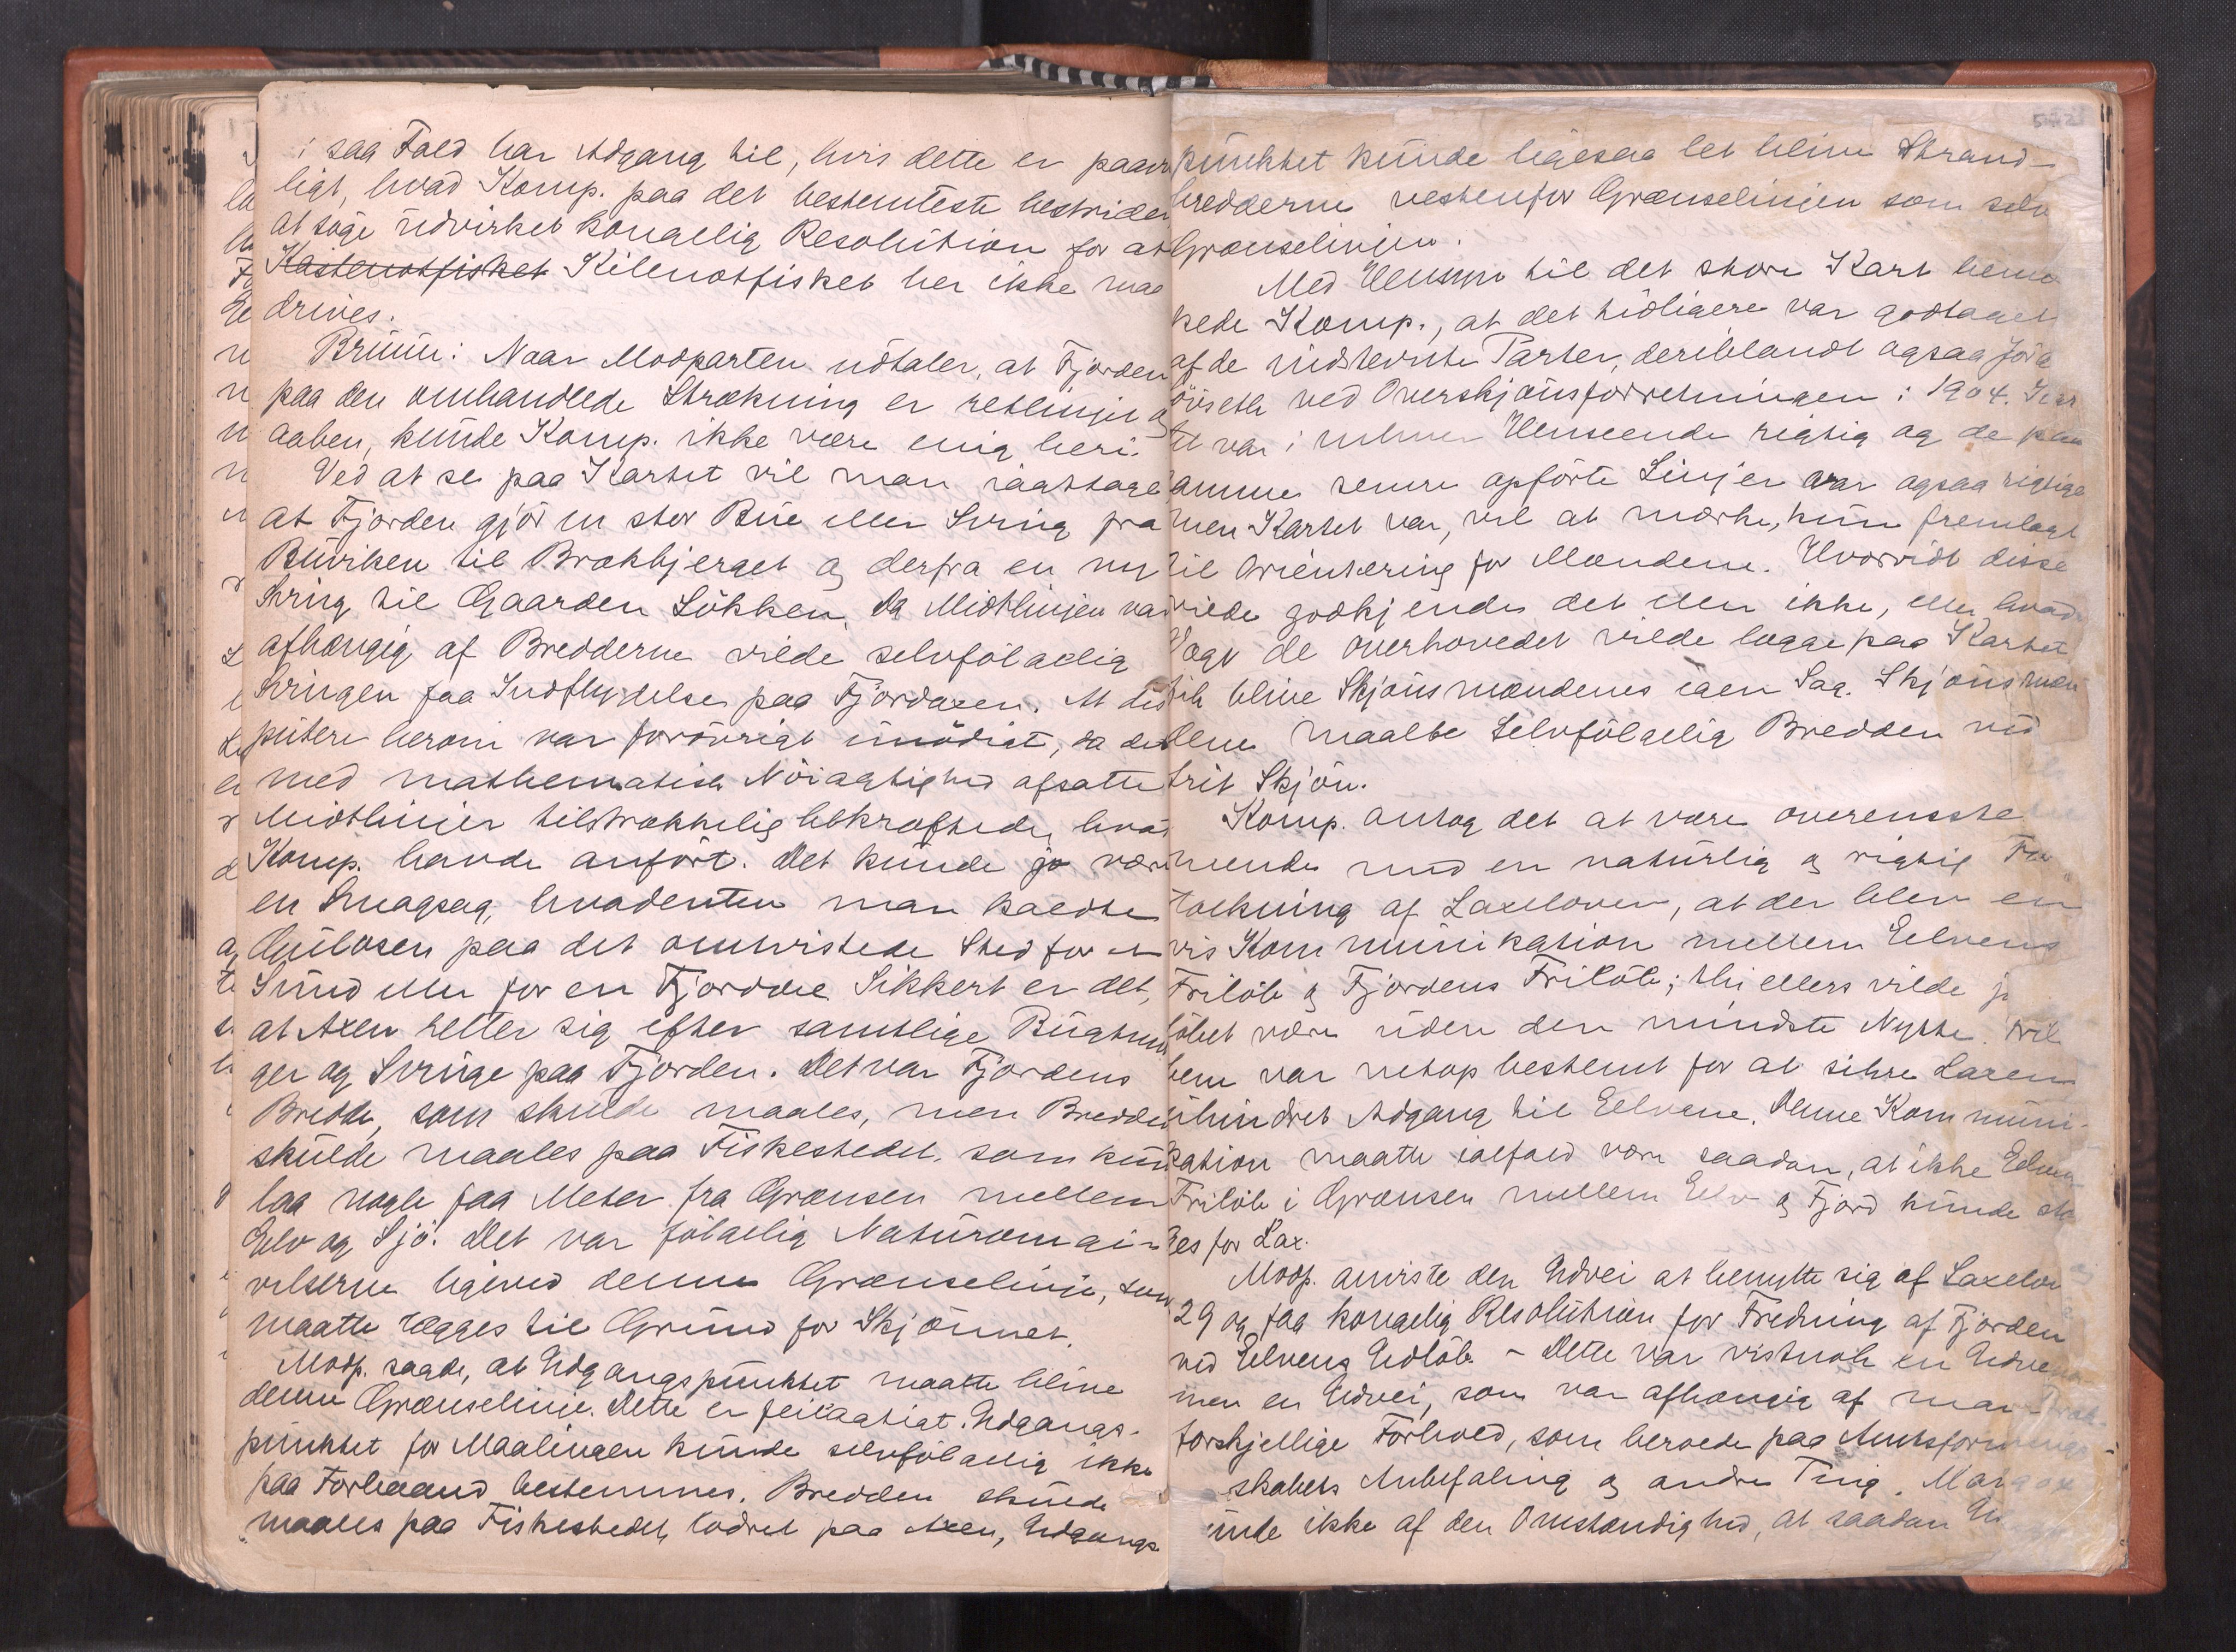 i saa Fald har Adgang til, hvis dette er paa
ligt, hvad Komp. paa det bestemteste bestrider
at søge udvirket kongelig Resolution for at
Kastenotfisket Kilenotfisket her ikke maa
drives.
Bruun: Naar Modparten udtaler, at Fjorden
paa den omhandlede Strækning er retlinjet og
aaben, kunde Komp. ikke være enig heri.
Ved at se paa Kartet vil man iagttage
at Fjorden gjør en stor Bue eller Sving fra
Buviken til Brækbjerget og derfra en ny
Sving til Gaarden Løkken. Da Midtlinjen var
afhængig af Bredderne vilde selvfølgelig
Svingen faa Indflydelse paa Fjordaxen. At dis
putere herom var forøvrigt unødigt, da det
med mathematisk Nøiagtighed afsatte
Midtlinjer tilstrækkelig bekræftede, hvad
Komp. havde anført. Det kunde jo være
en Smagsag, hvadenten man kaldte
Gulosen paa det omtvistede Sted for et
Sund eller for en Fjord. Sikkert er det,
at Axen retter sig efter samtlige Bugtnin
ger og Svinge paa Fjorden. Det var Fjordens
Bredde, som skulde maales, men Bredden
skulde maales paa Fiskestedet, som kun
laa nogle faa Meter fra Grænsen mellem
Elv og Sjø. Det var følgelig Naturomgi-
velserne ligeved denne Grænselinje, som
maatte lægges til Grund for Skjønnet.
Modp. sagde, at Udgangspunktet maatte blive
denne Grænselinje. Dette er feilagtigt. Udgangs-
punktet for Maalingen kunde selvfølgelig ikke
paa Forhaand bestemmes. Bredden skulde
maales paa Fiskestedet, lodret paa Axen, Udgangs
punktet kunde ligesaa let blive Strand-
bredderne vestenfor Grænselinjen som selve
Grænselinjen.
Med Hensyn til det store Kart bemær
kede Komp., at det tidligere var godtaget
af de indstevnte Parter, deriblandt ogsaa
ved Overskjønsforretningen i 1904. Kar
tet var i enhver Henseende rigtig og de paa
samme senere opførte Linjer var ogsaa rigtige
men Kartet var, vel at mærke, kun fremlagt
til Orientering for Mændene. Hvorvidt disse
vilde godkjende det eller ikke, eller hvad
Vægt de overhovedet vilde lægge paa Kartet
fik blive Skjønsmændenes egen Sag. Skjønsmæn
dene maalte selvfølgelig Bredden ved
frit Skjøn.
Komp. antog det at være overensstem
mende med en naturlig og rigtig For
tolkning af Laxeloven, at der blev en
vis Kommunikation mellem Elvens
Friløb og Fjordens Friløb; thi ellers vilde
løbet være uden den mindste Nytte. Fri
løbene var netop bestemt for at sikre Laxen
uhindret Adgang til Elvene. Denne Kommuni-
kation maatte ialfald være saadan, at ikke Elvens
Friløb i Grænsen mellem Elv og Fjord kunde
ges for Lax.
Modp. anviste den Udvei at benytte sig af Laxelov
29 og faa kongelig Resolution for Fredning af Fjorden
ved Elvens Udløb. – Dette var vistnok en Udvei
men en Udvei, som var afhængig af
forskjellige Forhold, som beroede paa Amtsformand-
skabets Anbefaling og andre Ting. Man
kunde ikke af den Omstændighed, at saadan